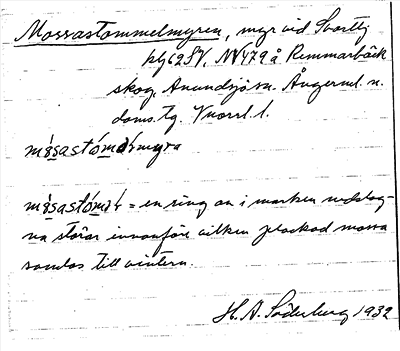 Mossastommelmyren, myr vid Svarttj
blg 62 SV, NV 479 å Remmarbäck
skog, Anundsjö sn. Ångerml. n.
doms. tg. Vnorrl. l.
mósastómǝlmyra
mósastómǝl = en ring av i marken nedslag-
na störar innanför vilken plockad mossa
samlas till vintern.
H. A. Söderberg 1932